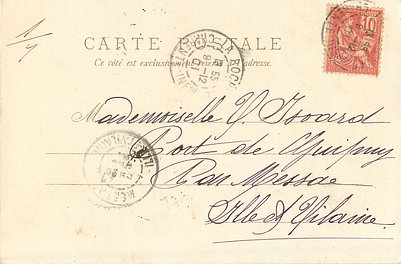 1/7
CARTE POSTALE
Ce côté est exclusivement réservé à l'adresse.
10
Mademoiselle Y. Isoard
Port de Guipry
Par Messac
Ille & Vilaine